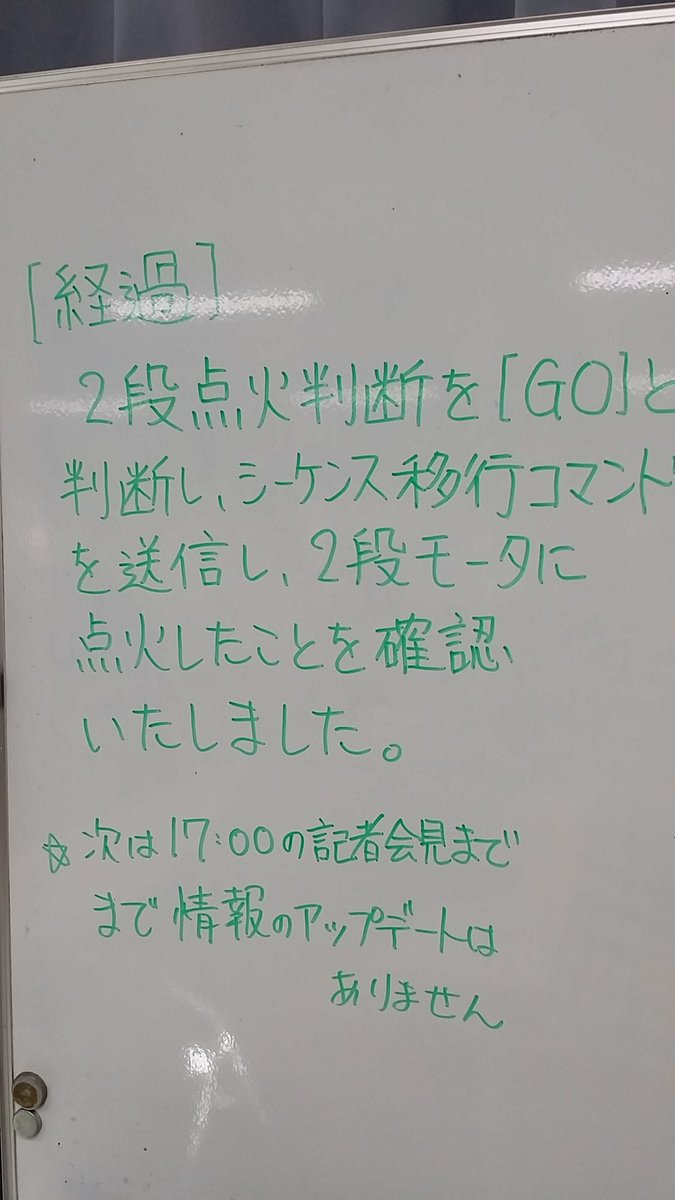 [経過]
2段点火判断を[GO]と
判断し、シーケンス移行コマンド
を送信し、2段モータに
点火したことを確認
いたしました。
☆次は17:00の記者会見まで
まで情報のアップデートは
ありません